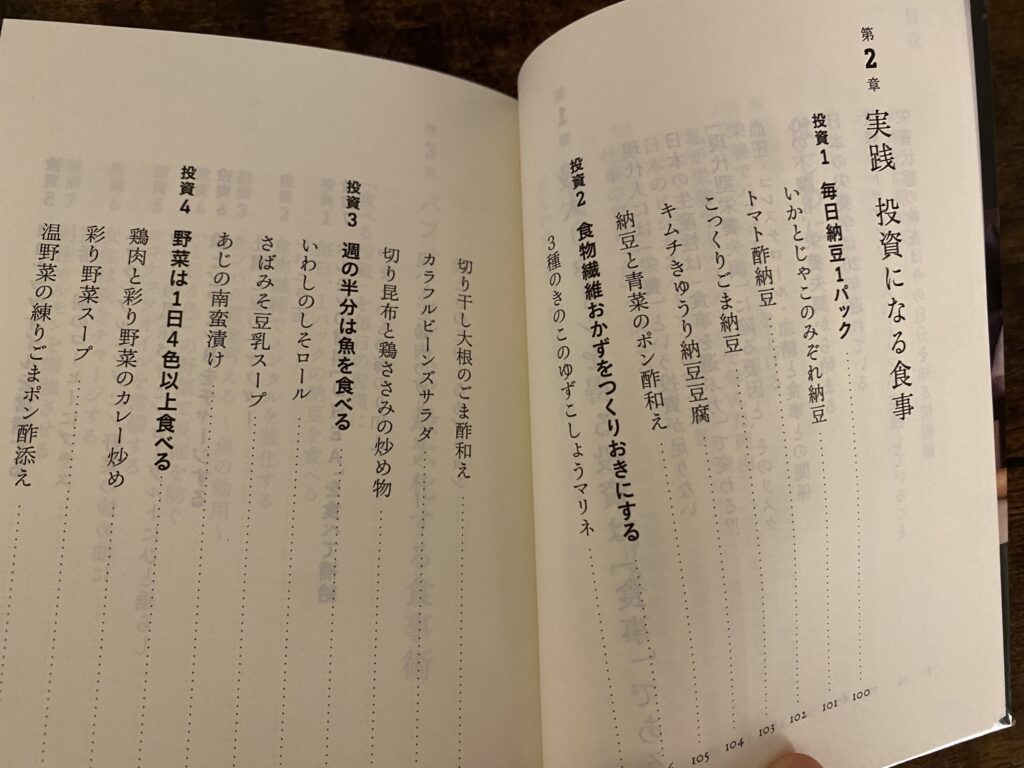 第2章 実践 投資になる食事
投資1 毎日納豆1パック 100
いかとじゃこのみぞれ納豆 101
トマト酢納豆 102
こっくりごま納豆 103
キムチきゅうり納豆豆腐 104
納豆と青菜のポン酢和え 105
投資2 食物繊維おかずをつくりおきにする
3種のきのこのゆずこしょうマリネ
切り干し大根のごま酢和え
カラフルビーンズサラダ
切り昆布と鶏ささみの炒め物
投資3 週の半分は魚を食べる
いわしのしそロール
さばみそ豆乳スープ
あじの南蛮漬け
投資4 野菜は1日4色以上食べる
鶏肉と彩り野菜のカレー炒め
彩り野菜スープ
温野菜の練りごまポン酢添え